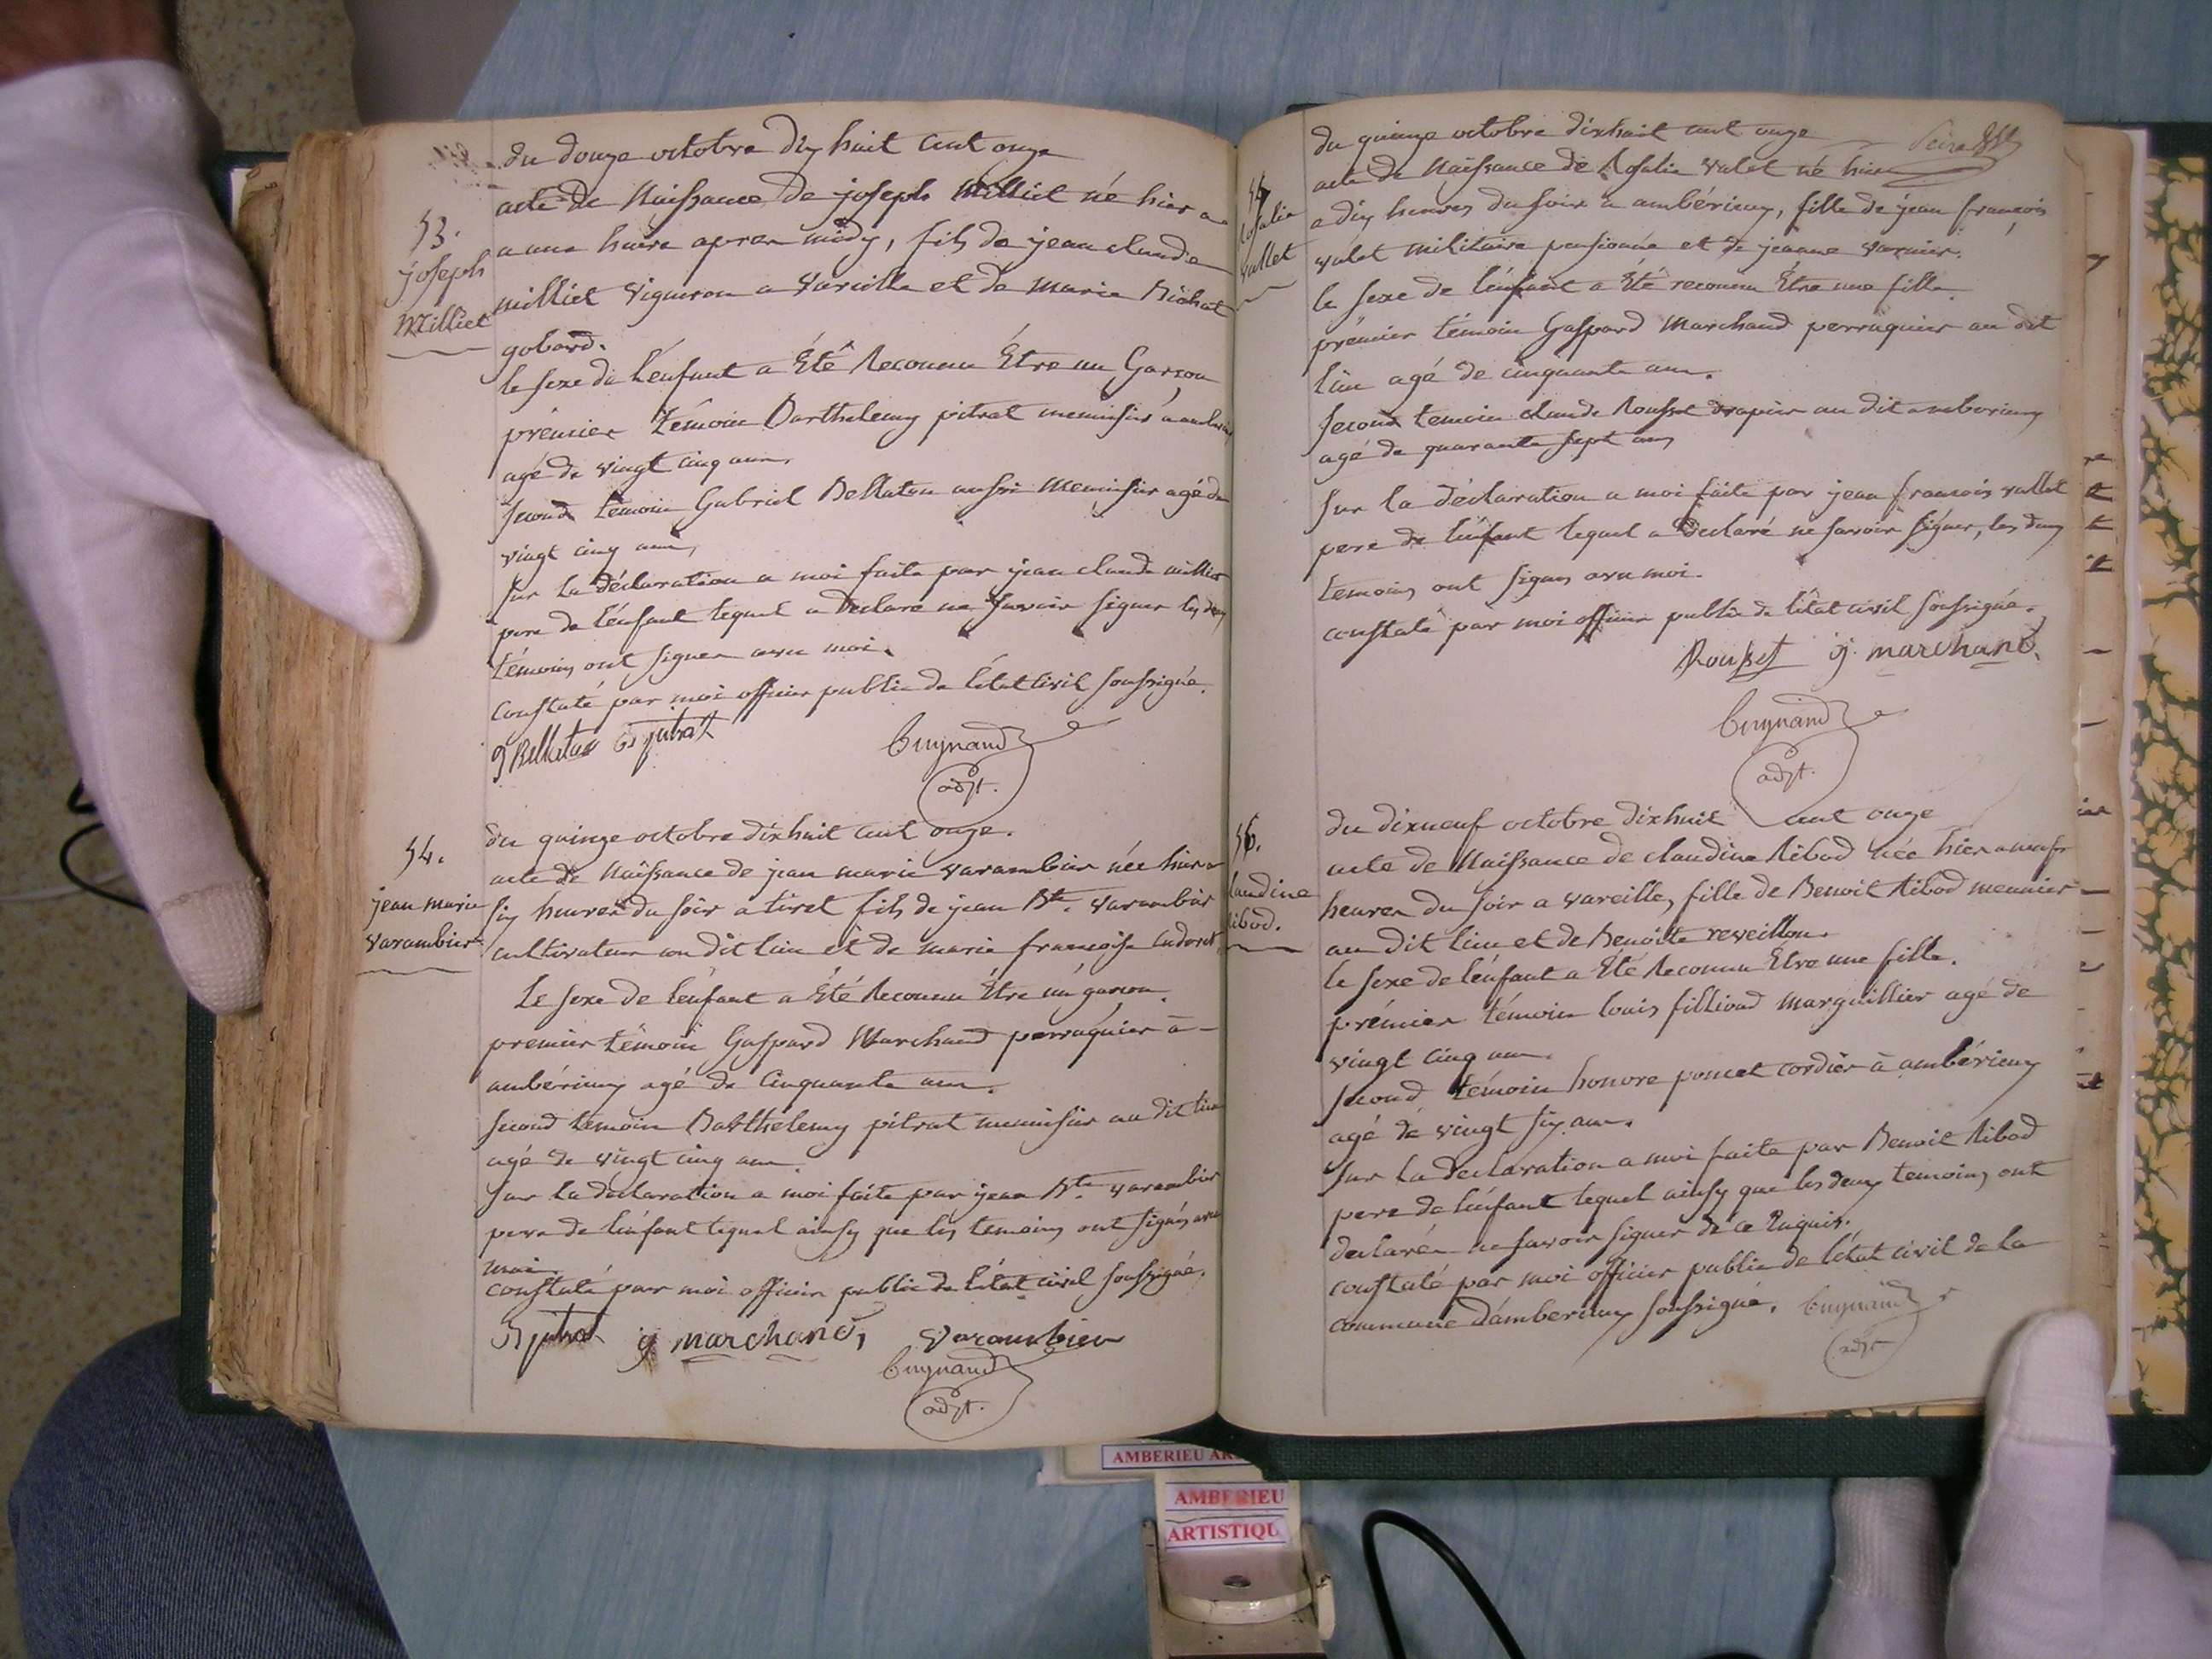 du douze octobre dix huit cent onze
acte de Naissance de joseph Milliet né hier a
53.
joseph
Milliet
a une heure apres midy, fils de jean claude
milliet vigneron a Vareille et de marie Bichat
gobard.
le sexe de l'enfant a Été Reconnu Être un Garson
prémier témoin Barthelemy pitrat menuisier a
agé de vingt cinq ans.
second témoin Gabriel Bellaton aussi Menuisier agé de
vingt cinq ans,
sur la déclaration a moi faite par jean claude millier
pere de l'énfant lequel a declaré ne savoir signer les deux
témoins ont signer avec moi.
constaté par moi officier public de l'état Civil soussigné.
g Bellaton B pitrat Cuynand
adjt.
du quinze octobre dixhuit cent onze.
54.
jean marie
varambier
acte de Naissance de jean marie varambier née hier a
six heures du soir a tiret fils de jean Bte. varambier
cultivateur au dit lieu et de marie françoise
Le sexe de l'énfant a Été Reconnu Être un garson.
premier témoin Gaspard Marchand perruquier à
ambérieux agé de Cinquante ans.
second témoin Barthelemy pitrat menuisier au dit lieu
agé de vingt cinq ans.
sur la declaration a moi faite par jean Bte. varambier
pere de l'énfant lequel ainsy que les temoins ont signés avec
moi.
constaté par moi officier public de l'état civil soussigné.
B pitrat g marchand, varambier
Cuynand
adjt.
du quinze octobre dixhuit cent onze
acte de Naissance de Rosalie valet né hier
osalie
vallet
a dix heures du soir a ambérieux, fille de jean françois
valet militaire pensionée et de jeanne varnier.
le sexe de l'énfant a Été reconnu Être une fille.
prémier témoin Gaspard Marchand perruquier au dit
lieu agé de cinquante ans.
second temoin claude Rousset drapier au dit amberieux
agé de quarante sept ans
sur la déclaration a moi faite par jean francois vallet
pere de l'énfant lequel a declaré ne savoir signer, les deux
temoins ont signes avec moi.
constaté par moi officier public de l'état civil soussigné.
Rousset g. marchand.
Cuynand
adjt.
du dixneuf octobre dixhuit cent onze
56.
laudine
ibod.
acte de Naissance de claudine Ribod née hier a neuf
heures du soir a vareille, fille de Benoit Ribod meunier
au dit lieu et de Benoîte reveillon.
le sexe de l'énfant a Été Reconnu Être une fille.
prémier témoin louis filliod marguillier agé de
vingt cinq ans.
second témoin honore poncet cordier à ambérieux
agé de vingt six ans.
sur la declaration a moi faite par Benoit Ribod
pere de l'énfant lequel ainsy que les deux temoins ont
declarés ne savoir signer de ce Requis.
constaté par moi officier public de l'état civil de la
commune d'amberieux soussigné. Cuynand
adjt
AMBERIEU
AMBERIEU
ARTISTIQU